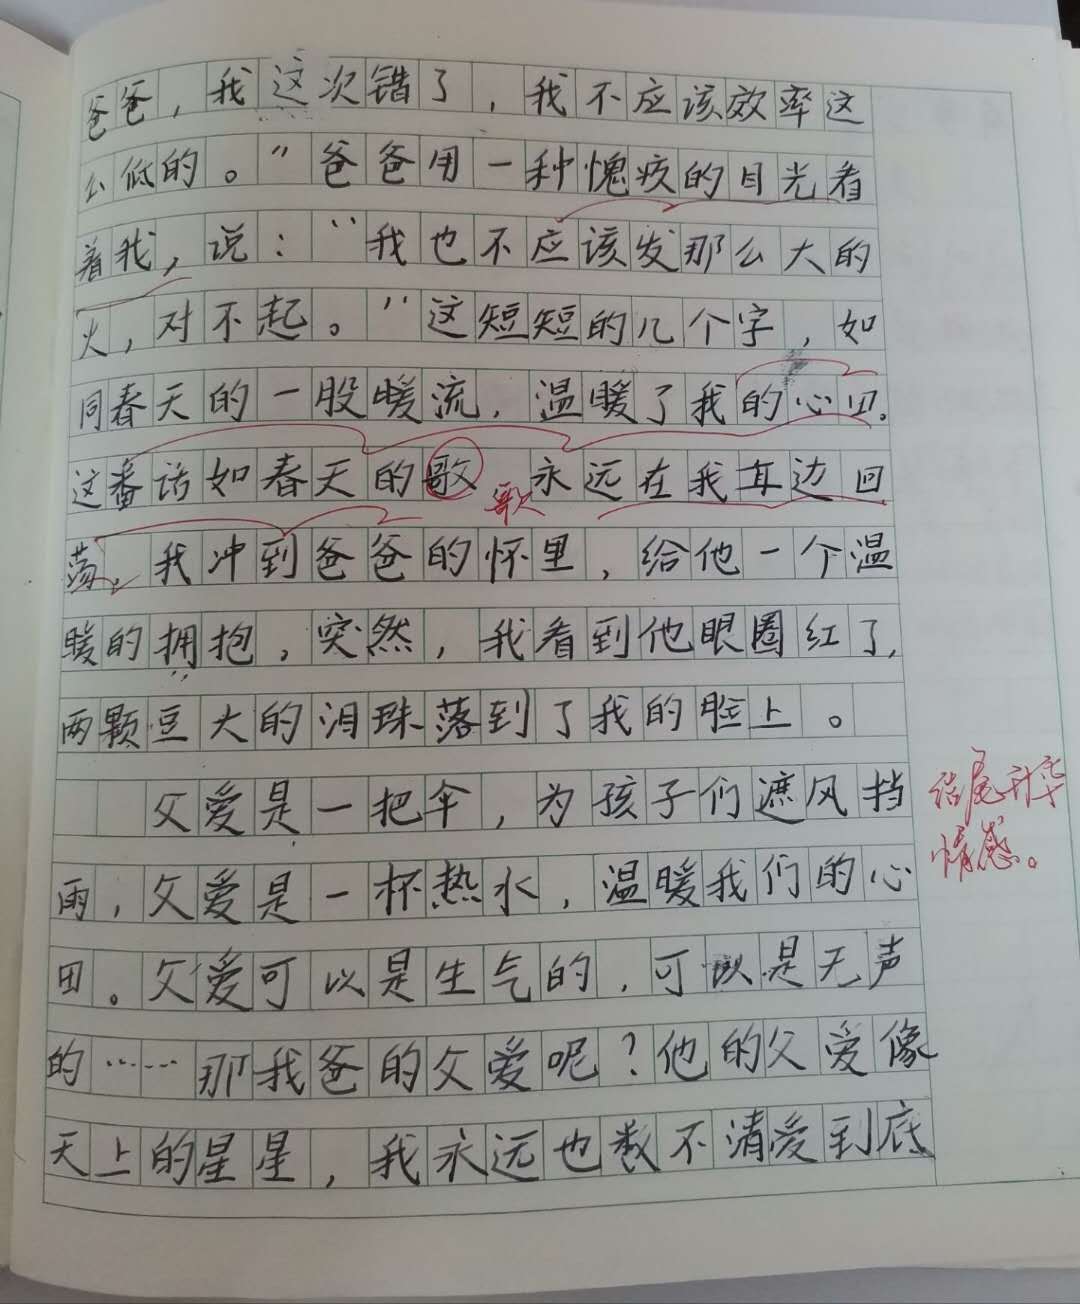 爸爸，我这次错了，我不应该效率这
么低的。”爸爸用一种愧疚的目光看
着我，说：“我也不应该发那么大的
火，对不起。”这短短的几个字，如
同春天的一股暖流，温暖了我的心田。
这番话如春天的歌 永远在我耳边回
歌
荡，我冲到爸爸的怀里，给他一个温
暖的拥抱，突然，我看到他眼圈红了，
两颗豆大的泪珠落到了我的脸上。
父爱是一把伞，为孩子们遮风挡
结尾升华
情感。
雨，父爱是一杯热水，温暖我们的心
田。父爱可以是生气的，可以是无声
的……那我爸的父爱呢？他的父爱像
天上的星星，我永远也数不清爱到底